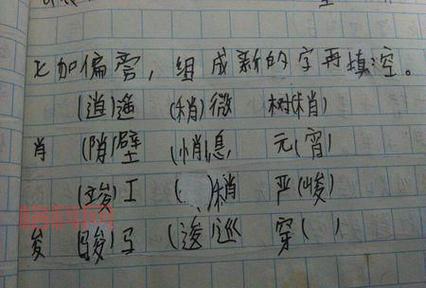 加偏旁，组成新的字再填空。
(逍)遥 (稍)微 树(梢)
肖 (陗)壁 (悄)息 元(宵)
(竣)工 ( )梢 严(峻)
夋 (骏)马 (逡)巡 穿( )